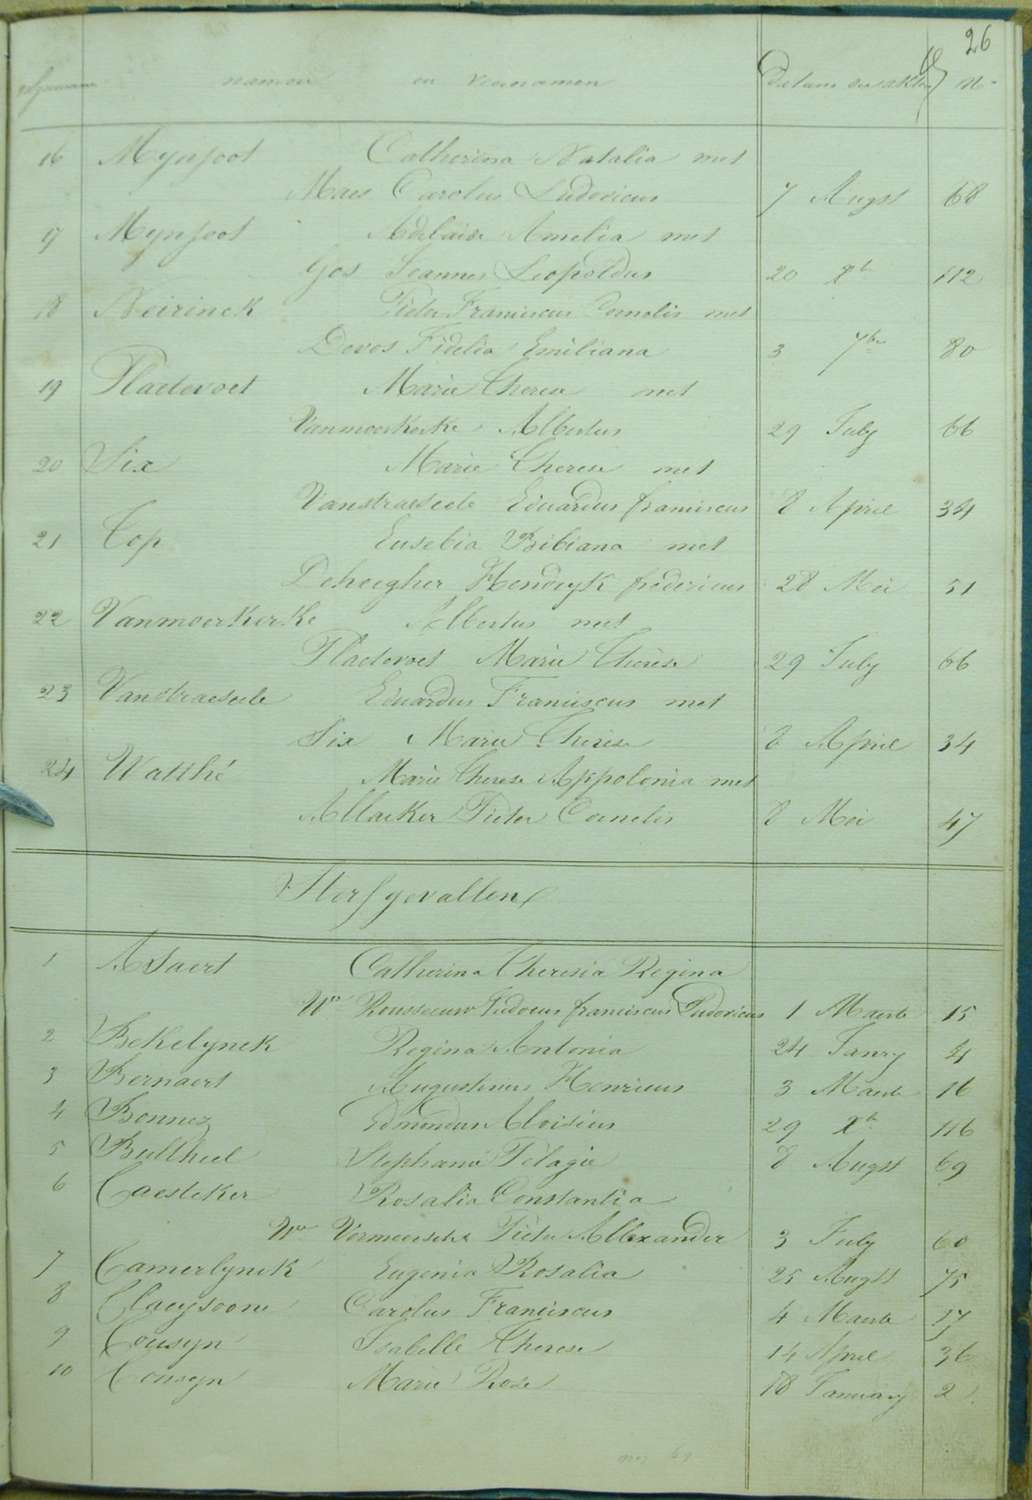 26
namen en voornamen Datum der akten N°
16 Mynsoot Catherina Natalia met
Maes Carolus Ludovicus 7 Augst 68
17 Mynsoot Adelaide Amelia met
Gos Joannes Leopoldus 20 Xb 112
18 Neirinck Pieter Franciscus Cornelis met
Devos Fidelia Emiliana 3 7ber 80
19 Plaetevoet Marie Theresa met
Vanmoerkerke Albertus 29 July 66
20 Six Marie Therese met
Vanstraeseele Eduardus franciscus 8 April 34
21 Top Eusebia Bibiana met
Deheegher Hendryk fredericus 28 Mei 51
22 Vanmoerkerke Albertus met
Plaetevoet Marie Therese 29 July 66
23 Vanstraeseele Eduardus Franciscus met
Six Marie Therese 8 April 34
24 Watthé Marie Therese Appolonia met
Allacker Pieter Cornelis 8 Mei 47
Sterfgevallen
1 Asaert Catherina Theresia Regina
We Rousseeuw Judocus franciscus Ludovicus 1 Maerte 15
2 Bekelynck Regina Antonia 24 Janry 4
3 Bernaert Augustinus Henricus 3 Maerte 16
4 Bonnez Edmondus Aloisius 29 Xb 116
5 Bultheel Stephanie Pelagie 8 Augst 69
6 Caesteker Rosalia Constantia
We Vermeersch Pieter Allexander 3 July 60
7 Camerlynck Eugenia Rosalia 25 Augst 75
8 Claeysoone Carolus Franciscus 4 Maerte 17
9 Cousyn Isabelle Therese 14 April 36
10 Cousyn Marie Rose 18 January 2